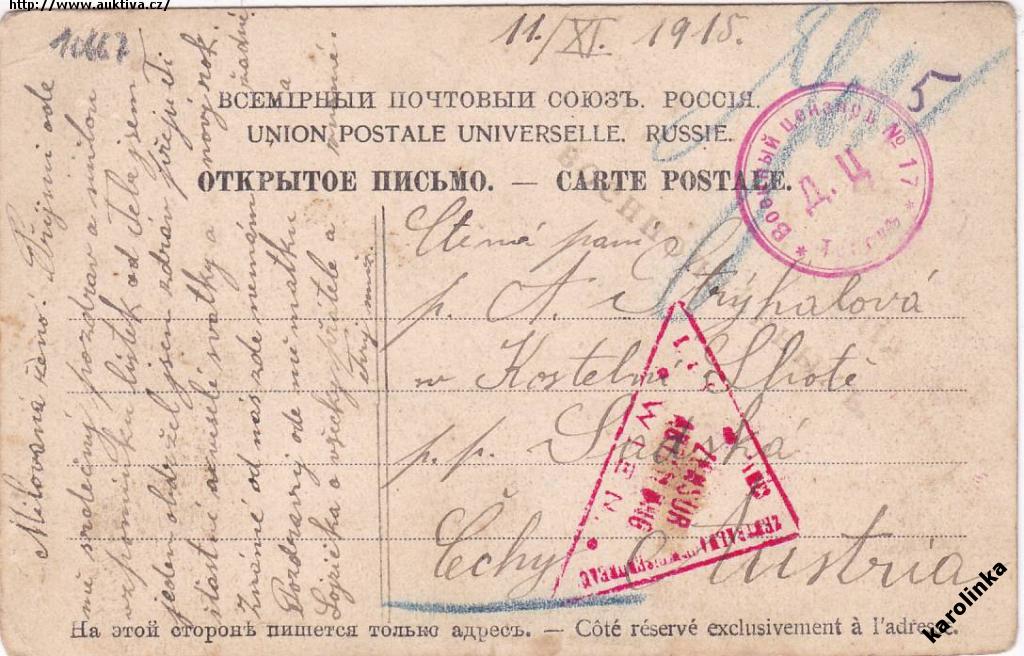 http://www.auktiva.cz/
11./XI. 1915.
5
ВСЕМІРНЫЙ ПОЧТОВЫЙ СОЮЗЪ. РОССІЯ.
UNION POSTALE UNIVERSELLE. RUSSIE.
ОТКРЫТОЕ ПИСЬМО. — CARTE POSTALE.
* Военный цензоръ № 17 *
Д. Ц
Milovaná ženo! Přijmi ode
mně srdečný pozdrav a
vzpomínku lístek od Tebe jsem
jeden obdržel jsem zdráv přeji Ti
šťastné a veselé svátky a nový rok
známé od nás zde nemám žádné
Pozdravuj ode mně matku a
Lojzíka a všecky přátele a známé
Tvůj muž
Ctěná paní
p. A. Strýhalová
v Kostelní Lhotě
p. p. Sadská
Čechy Austria
WIEN
ZENSUR
На этой сторонѣ пишется только адресъ. — Côté réservé exclusivement à l'adresse.
karolinka